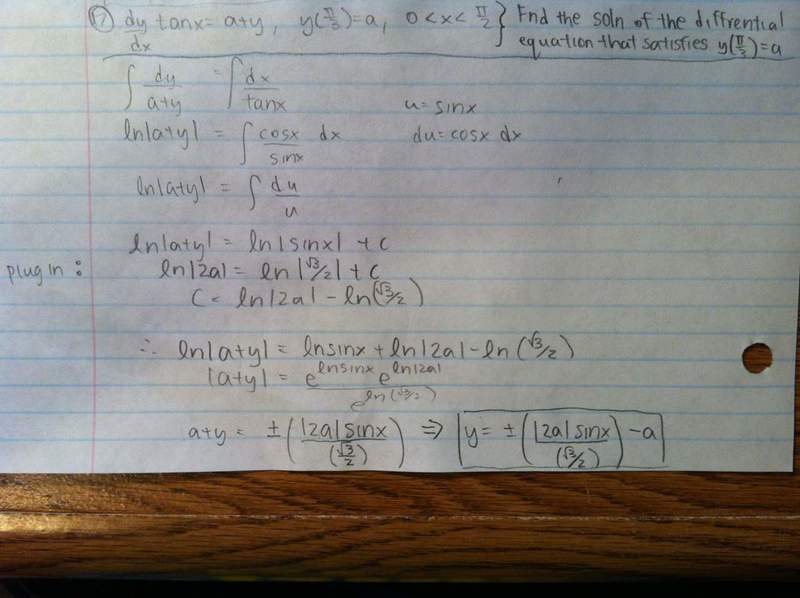 17 dy/dx tanx = a+y, y(π/3)=a, 0<x<π/2 } Fnd the soln of the diffrential
equation that satisfies y(π/3)=a
∫ dy/a+y = ∫ dx/tanx
u= sinx
ln|a+y| = ∫ cosx/sinx dx
du= cosx dx
ln|a+y| = ∫ du/u
ln|a+y| = ln|sinx| + c
plug in :
ln|2a| = ln|√3/2| + c
C = ln|2a| - ln(√3/2)
∴ ln|a+y| = lnsinx + ln|2a| - ln(√3/2)
|a+y| = e^lnsinx e^ln|2a| / e^ln(√3/2)
a+y = ±(|2a| sinx/(√3/2)) ⇒ y= ±(|2a| sinx/(√3/2)) -a